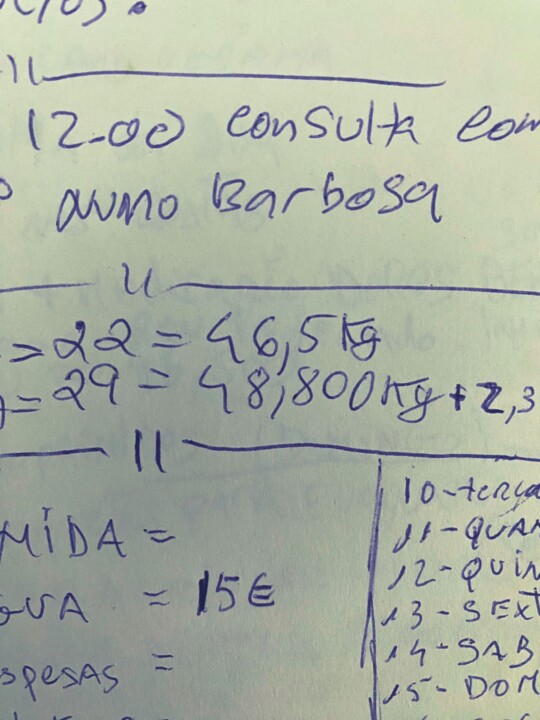 12-00 consulta com
Nuno Barbosa
= 22 = 46,5 Kg
= 29 = 48,800 Kg + 2,3
MIDA =
GUA = 15€
spesas =
10-terça
11-QUAR
12-QUIN
13-SEXT
14-SAB
15-DOM